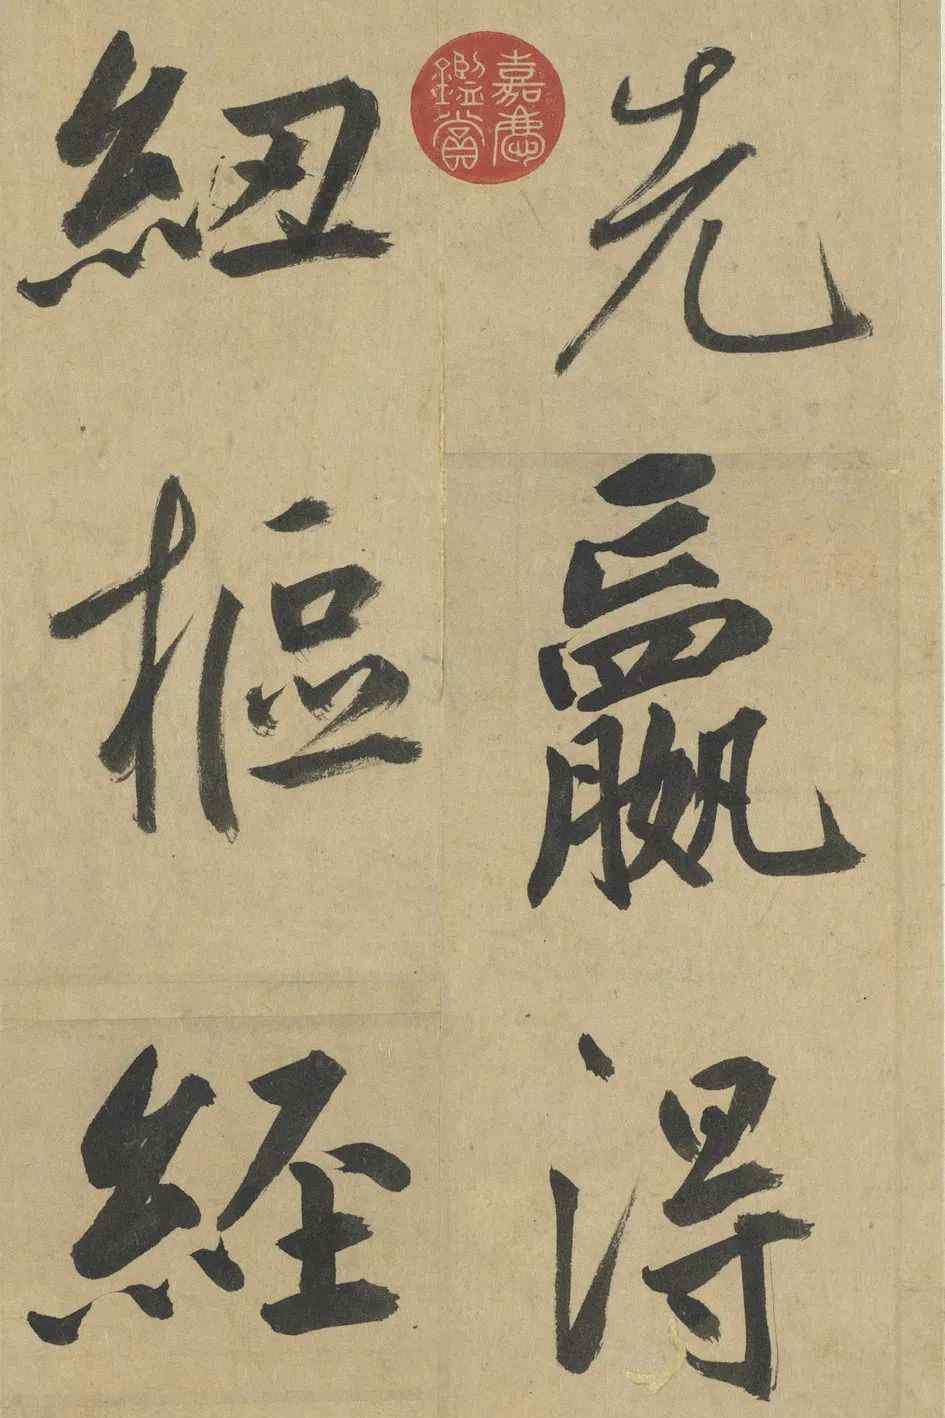 先嬴得
紐樞經
嘉慶鑑賞